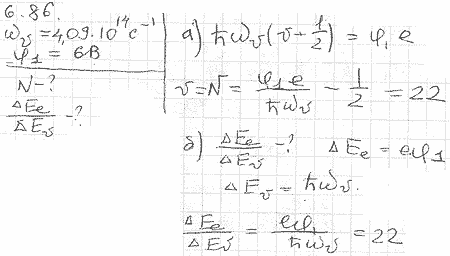 6.86.
ω_v = 4,09·10^14 c^-1
φ_1 = 6В
N - ?
ΔE_e/ΔE_v - ?
а) ħω_v(v + 1/2) = φ_1 e
v = N = φ_1 e/ħω_v - 1/2 = 22
б) ΔE_e/ΔE_v - ? ΔE_e = eφ_1
ΔE_v = ħω_v.
ΔE_e/ΔE_v = eφ_1/ħω_v = 22